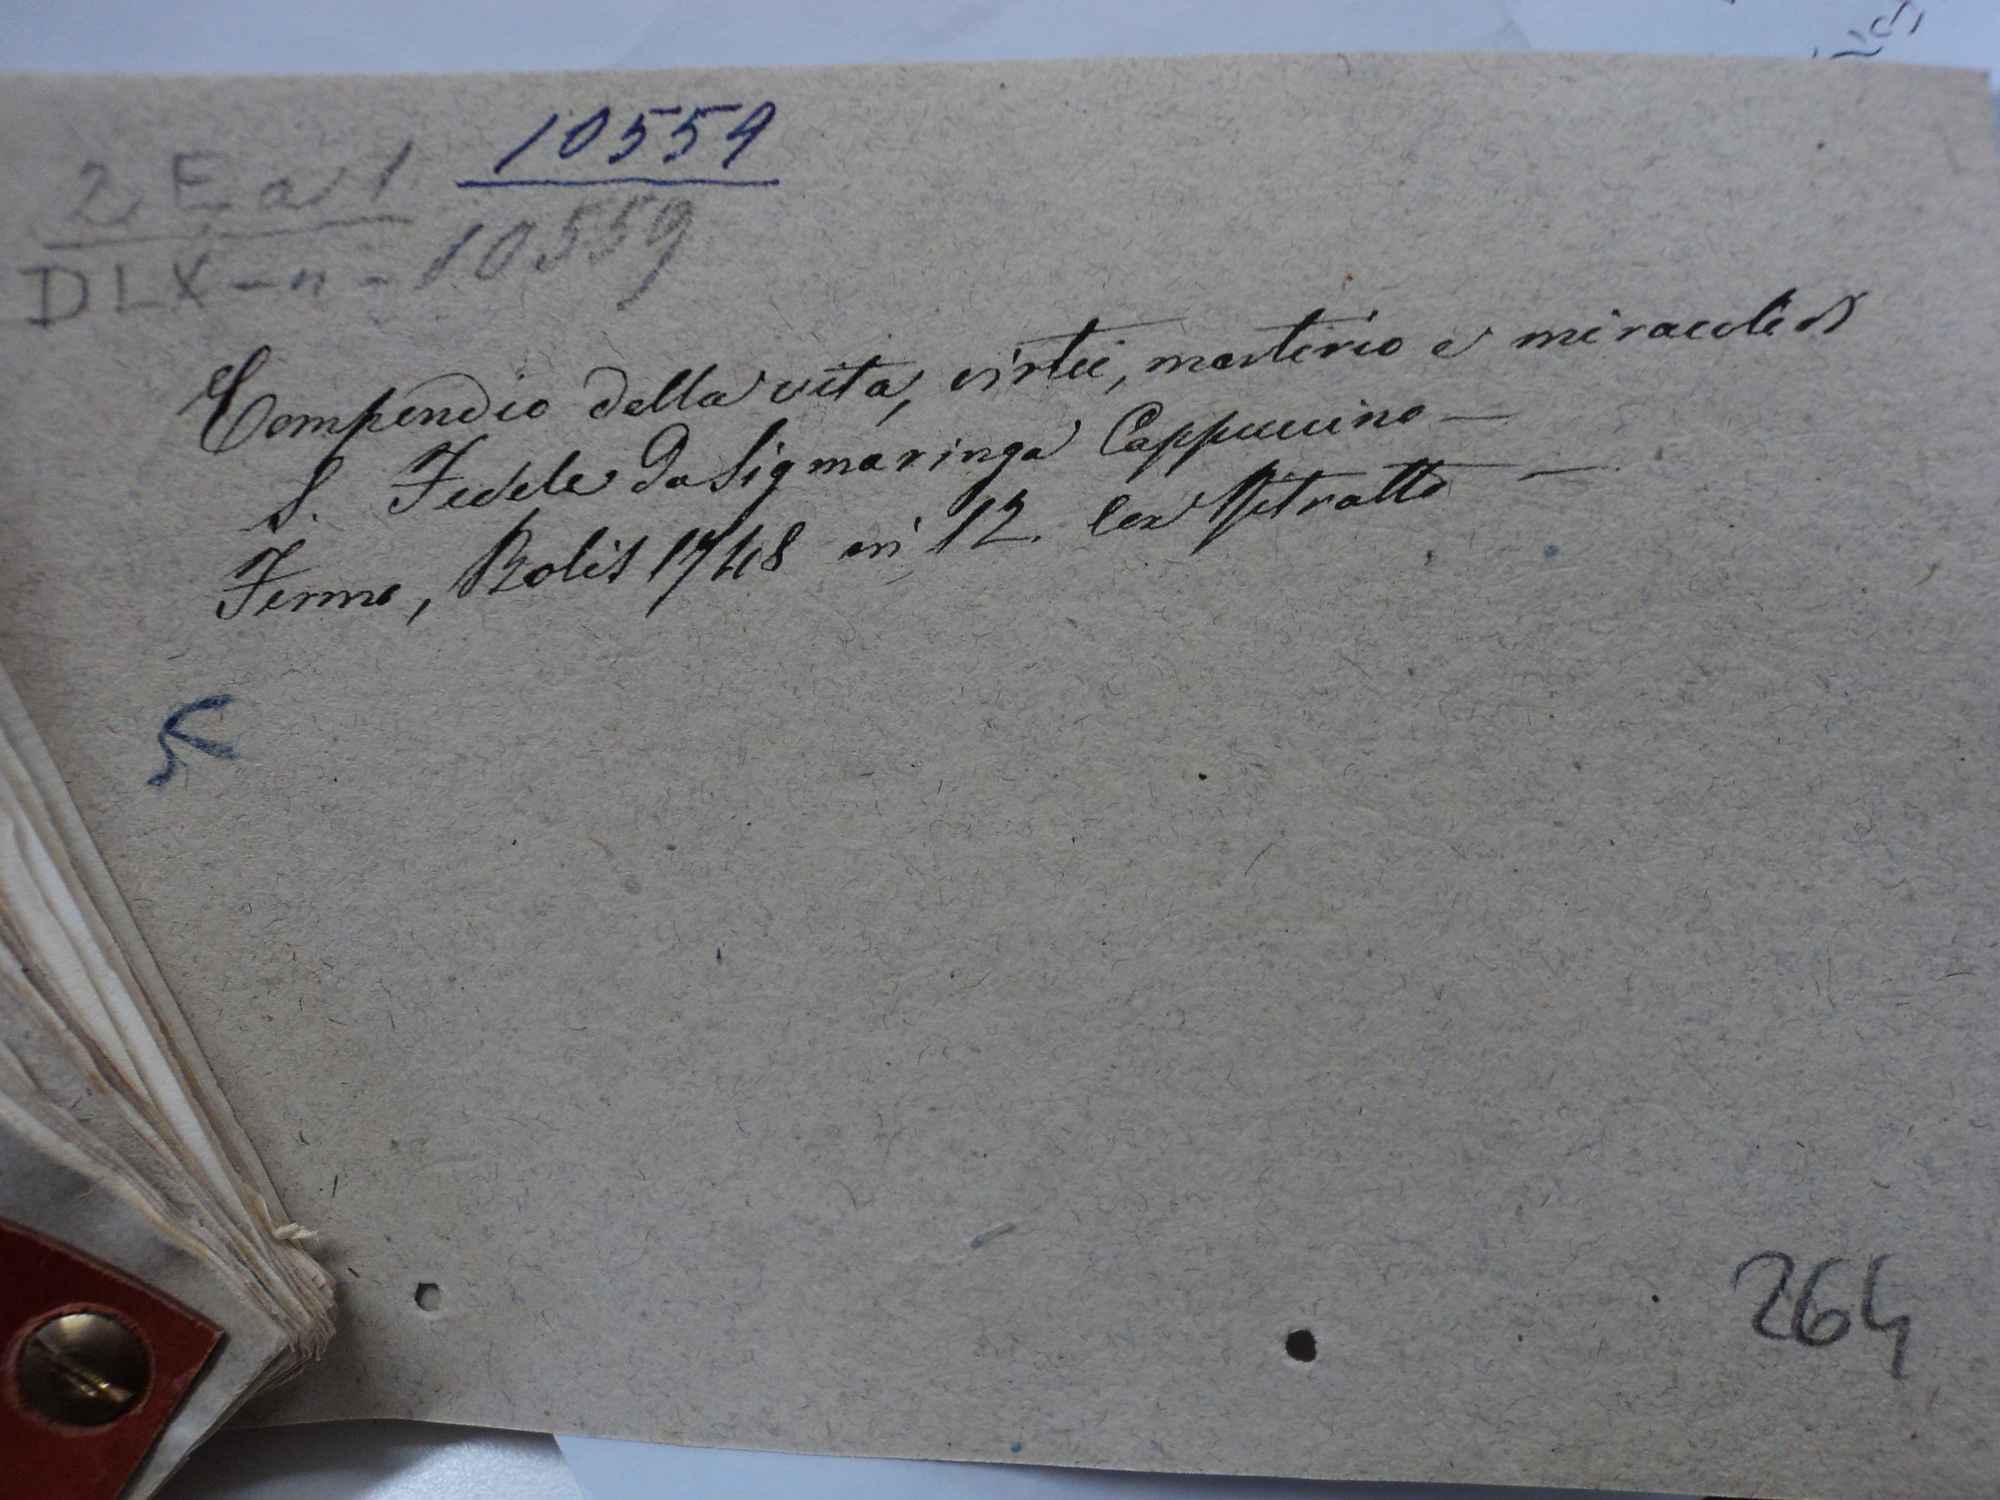 2 E a 1 10559
DLX-n-10559
Compendio della vita, virtù, martirio e miracoli di
S. Fedele da Sigmaringa Cappuccino —
Fermo, Bolis 1748 in 12. Con Ritratto —
264